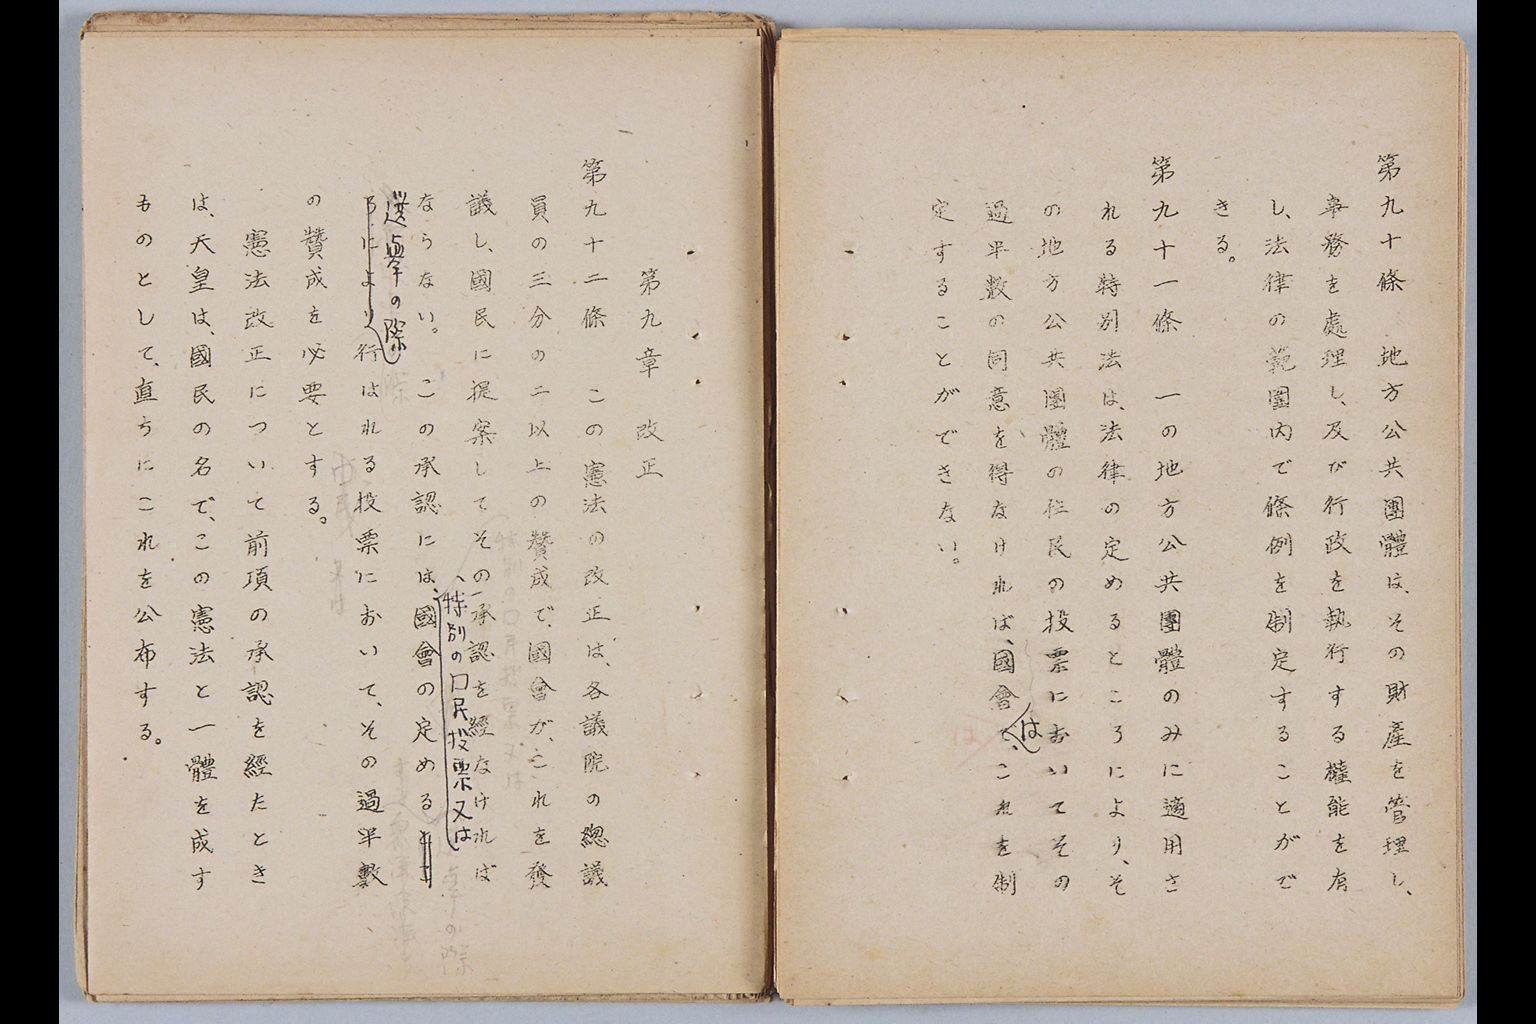 第九十條　地方公共團體は、その財產を管理し、
事務を處理し、及び行政を執行する權能を有
し、法律の範圍内で條例を制定することがで
きる。
第九十一條　一の地方公共團體のみに適用さ
れる特別法は、法律の定めるところにより、そ
の地方公共團體の住民の投票においてその
過半數の同意を得なければ、國會で、これを制
は
定することができない。
第九章　改正
第九十二條　この憲法の改正は、各議院の總議
員の三分の二以上の贊成で、國會が、これを發
議し、國民に提案してその承認を經なければ
特別の口民投票又は
ならない。この承認には、國會の定めるとこ
選擧の際
ろにより行はれる投票において、その過半數
の贊成を必要とする。
憲法改正について前項の承認を經たとき
は、天皇は、國民の名で、この憲法と一體を成す
ものとして、直ちにこれを公布する。